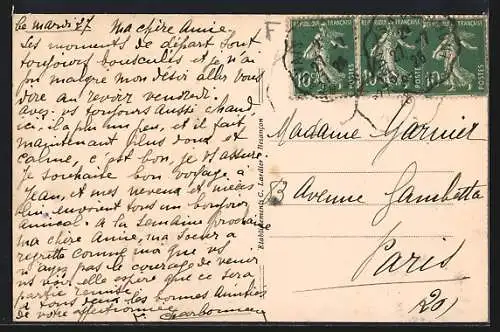 le mardi 27 Ma chère Annie.
Les moments de départ sont
toujours bousculés et je n'ai
pu malgré mon désir aller vous
dire au revoir vendredi.
Avez-vous toujours aussi chaud
ici, il a plu un peu, et il fait
maintenant plus doux et
calme, c'est bon, je vs assure.
Je souhaite bon voyage à
Jean, et mes neveux et nièces
lui envoient tous un bonjour
amical. A la semaine prochaine
ma chère Annie, ma sœur a
regretté comme moi que vs
n'ayez pas le courage de venir
vs voir, elle espère que ce sera
partie remise.
à vous deux les bonnes amitiés
de votre affectionnée
Charbonneau
Etablissements C. Lardier - Besançon
F
REPUBLIQUE FRANÇAISE
10c
POSTES
REPUBLIQUE FRANÇAISE
10c
POSTES
REPUBLIQUE FRANÇAISE
10c
POSTES
Madame Garnier
83 Avenue Gambetta
Paris
(20)